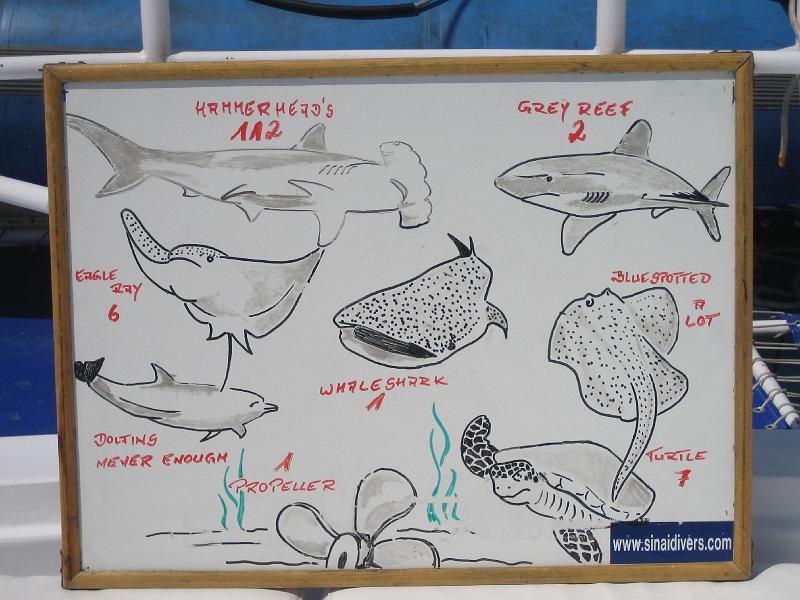 HAMMERHEAD'S
112
GREY REEF
2
EAGLE
RAY
6
BLUESPOTTED
A
LOT
WHALESHARK
1
DOLFINS
NEVER ENOUGH
1
PROPELLER
TURTLE
7
www.sinaidivers.com